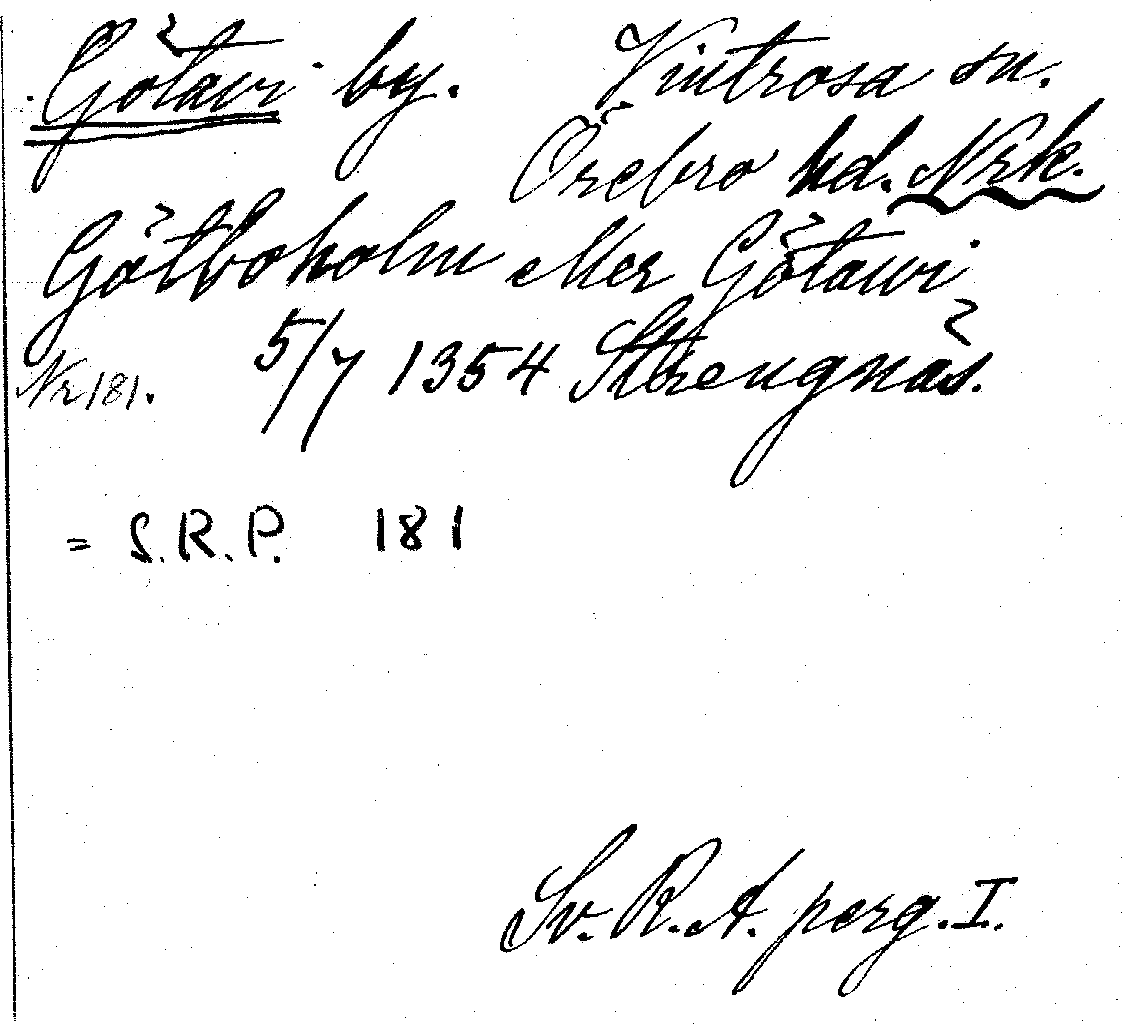 Götavi by. Vintrosa sn.
Örebro hd. Nrk.
Götboholm eller Götawi
Nr 181. 5/7 1354 Strengnäs.
= S.R.P. 181
Sv. R. A. perg. I.